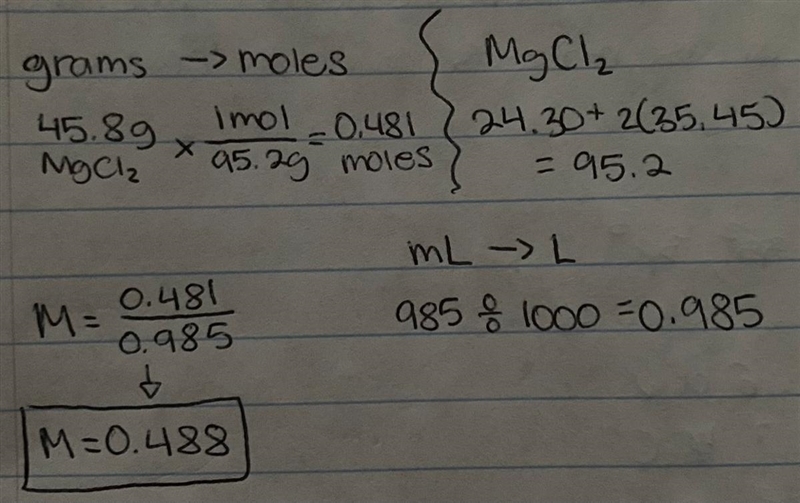 grams → moles
45.8g MgCl₂ × 1mol / 95.2g = 0.481 moles
MgCl₂
24.30 + 2(35.45)
= 95.2
mL → L
985 ÷ 1000 = 0.985
M = 0.481 / 0.985
↓
M = 0.488